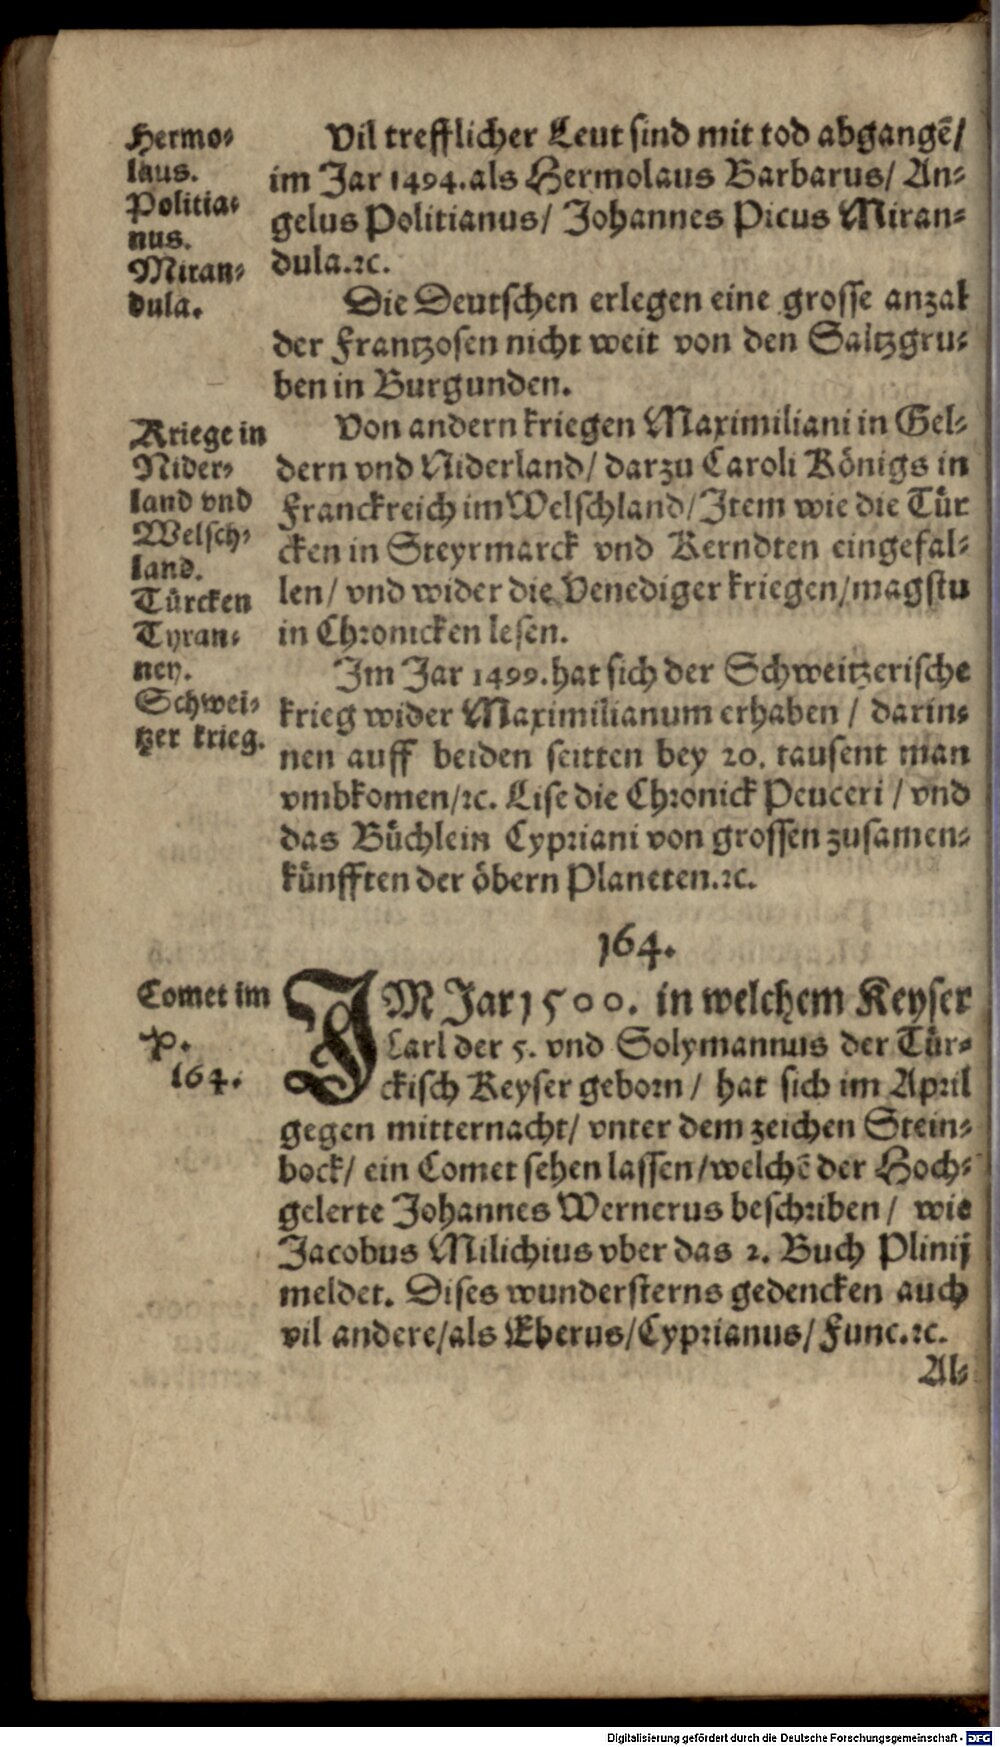 Hermo⸗
laus.
Politia⸗
nus.
Miran⸗
dula.
Vil trefflicher Leut sind mit tod abgangẽ/
im Jar 1494. als Hermolaus Barbarus/ An⸗
gelus Politianus/ Johannes Picus Miran⸗
dula. ꝛc.
Die Deutschen erlegen eine grosse anzal
der Frantzosen nicht weit von den Saltzgru⸗
ben in Burgunden.
Kriege in
Nider⸗
land vnd
Welsch⸗
land.
Türcken
Tyran⸗
ney.
Schwei⸗
tzer krieg.
Von andern kriegen Maximiliani in Gel⸗
dern vnd Niderland/ darzu Caroli Königs in
Franckreich im Welschland/ Item wie die Tür
cken in Steyrmarck vnd Kerndten eingefal⸗
len/ vnd wider die Venediger kriegen/ magstu
in Chronicken lesen.
Im Jar 1499. hat sich der Schweitzerische
krieg wider Maximilianum erhaben / darin⸗
nen auff beiden seitten bey 20. tausent man
vmbkomen/ ꝛc. Lise die Chronick Peuceri / vnd
das Büchlein Cypriani von grossen zusamen⸗
künfften der öbern Planeten. ꝛc.
164.
Comet im
P.
164.
IM Jar 1500. in welchem Keyser
Carl der 5. vnd Solymannus der Tür⸗
ckisch Keyser geborn / hat sich im April
gegen mitternacht/ vnter dem zeichen Stein⸗
bock/ ein Comet sehen lassen/ welchẽ der Hoch⸗
gelerte Johannes Wernerus beschriben / wie
Jacobus Milichius vber das 2. Buch Plinij
meldet. Dises wundersterns gedencken auch
vil andere/ als Eberus/ Cyprianus/ Func. ꝛc.
Al⸗
Digitalisierung gefördert durch die Deutsche Forschungsgemeinschaft - DFG